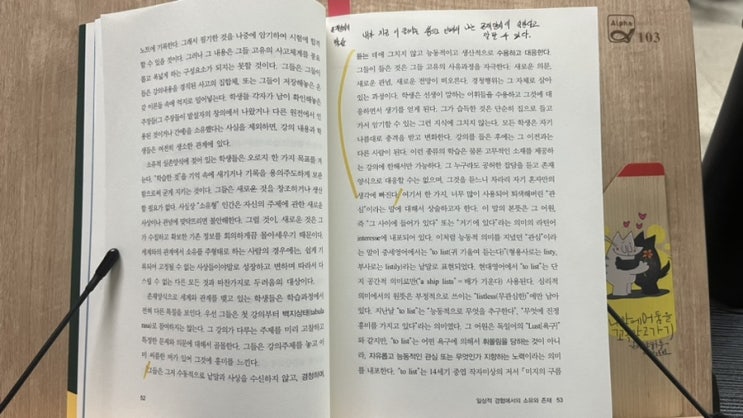 노트에 기록한다. 그래서 필기한 것을 나중에 암기하여 시험에 합격
할 수 있을 것이다. 그러나 그 내용은 그들 고유의 사고체계를 풍요
롭고 폭넓게 하는 구성요소가 되지는 못할 것이다. 그들은 그들이
들은 강의내용을 경직된 사고의 집합체, 또는 그들이 저장해놓은 온
갖 이론들 속에 억지로 밀어넣는다. 학생들 각자가 남이 확인해놓은
주장들(그 주장들이 발설자의 창의에서 나왔거나 다른 원전에서 인
용된 것이거나 간에)을 소유했다는 사실을 제외하면, 강의 내용과 학
생들은 여전히 생소한 관계에 있다.
소유적 실존양식에 젖어 있는 학생들은 오로지 한 가지 목표를 겨
눈다. "학습한 것"을 기억 속에 새기거나 기록을 용의주도하게 보관
함으로써 굳게 지키는 것이다. 그들은 새로운 것을 창조하거나 생산
할 필요가 없다. 사실상 "소유형" 인간은 자신의 주제에 관한 새로운
사상이나 관념에 맞닥뜨리면 불안해한다. 그럴 것이, 새로운 것은 그
가 수집하고 확보한 기존 정보를 회의하게끔 몰아세우기 때문이다.
세계와의 관계에서 소유를 주형태로 하는 사람의 경우에는, 쉽게 기
록되어 고정될 수 없는 사상들이야말로 성장하고 변하며 따라서 다
스릴 수 없는 다른 모든 것과 마찬가지로 두려움의 대상이다.
존재양식으로 세계와 관계를 맺고 있는 학생들은 학습과정에서
전혀 다른 특질을 보인다. 우선 그들은 첫 강의부터 백지상태(tabula
rasa)로 참여하지는 않는다. 그 강의가 다루는 주제를 미리 고찰하고
특정한 문제와 의문에 대해서 골몰한다. 그들은 강의주제를 놓고 이
미 씨름한 바가 있어 그것에 흥미를 느낀다.
그들은 그저 수동적으로 낱말과 사상을 수신하지 않고, 경청하며,
52
내가 지금 이 글을
Alpha
103
듣는 데에 그치지 않고 능동적이고 생산적으로 수용하고 대응한다.
그들이 들은 것은 그들 고유의 사유과정을 자극한다. 새로운 의문,
새로운 관념, 새로운 전망이 떠오른다. 경청행위는 그 자체로 살아
있는 과정이다. 학생은 선생이 말하는 어휘들을 수용하고 그것에 대
응하면서 생기를 얻게 된다. 그가 습득한 것은 단순히 집으로 들고
가서 암기할 수 있는 그런 지식에 그치지 않는다. 모든 학생은 자기
나름대로 충격을 받고 변화한다. 강의를 들은 후에는 그 이전과는
다른 사람이 된다. 이런 종류의 학습은 물론 고무적인 소재를 제공하
는 강의에 한해서만 가능하다. 그 누구라도 공허한 잡담을 듣고 존재
양식으로 대응할 수는 없으며, 그것을 듣느니 차라리 자기 혼자만의
생각에 빠진다. 여기서 한 가지, 너무 많이 사용되어 퇴색해버린 "관
심"이라는 말에 대해서 상술하고자 한다. 이 말의 본뜻은 그 어원,
즉 "그 사이에 들어가 있다" 또는 "거기에 있다"라는 의미의 라틴어
interesse에 내포되어 있다. 이처럼 능동적 의미를 지녔던 "관심"이라
는 말이 중세영어에서는 "to list(귀 기울여 듣는다)"(형용사로는 listy,
부사로는 listily)라는 낱말로 표현되었다. 현대영어에서 "to list"는 단
지 공간적 의미로만("a ship lists"=배가 기운다) 사용된다. 심리적
의미에서의 원뜻은 부정적으로 쓰이는 "listless(무관심한)"에만 남아
있다. 지난날 "to list"는 "능동적으로 무엇을 추구한다", "무엇에 진정
흥미를 가지고 있다"라는 의미였다. 그 어원은 독일어의 "Lust(욕구)"
와 같지만, "to list"는 어떤 욕구에 의해서 휘몰림을 당하는 것이 아니
라, 자유롭고 능동적인 관심 또는 무엇인가 지향하는 노력이라는 의미
를 내포한다. "to list"는 14세기 중엽 작자미상의 저서 『미지의 구름
일상적 경험에서의 소유와 존재 53